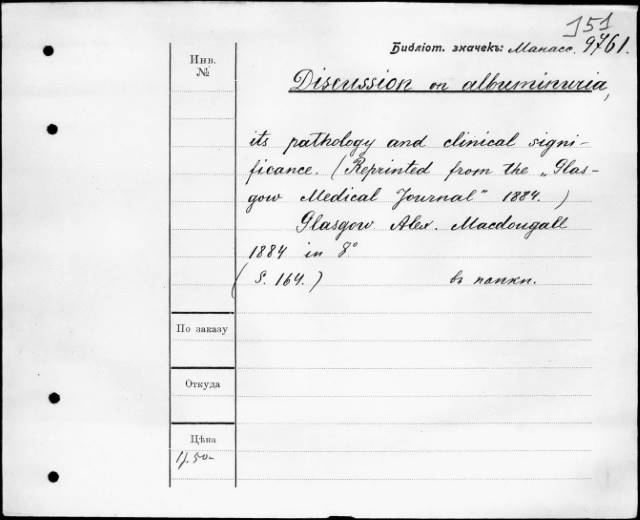 151
Библіот. значекъ: Манасс. 9761.
Инв.
№
Discussion on albuminuria,
its pathology and clinical signi-
ficance. (Reprinted from the „Glas-
gow Medical Journal" 1884.)
Glasgow Alex. Macdougall
1884 in 8°
(S. 164.)
въ папкѣ.
По заказу
Откуда
Цѣна